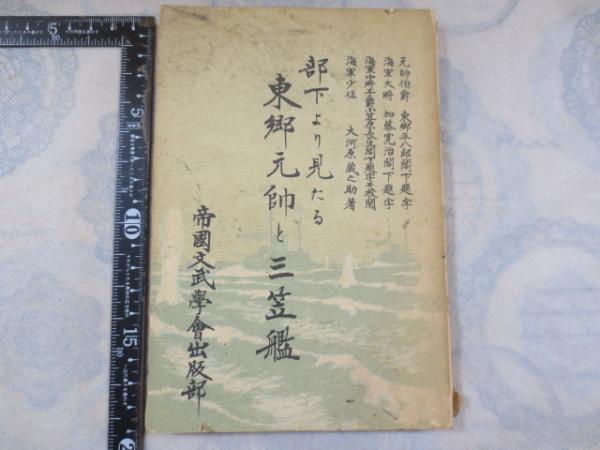 元帥伯爵 東郷平八郎閣下題字
海軍大将 加藤寛治閣下題字
海軍中将子爵小笠原長生閣下題字並校閲
海軍少佐 大河原蔵之助著
部下より見たる
東郷元帥と三笠艦
帝國文武學會出版部
5
10
15
2